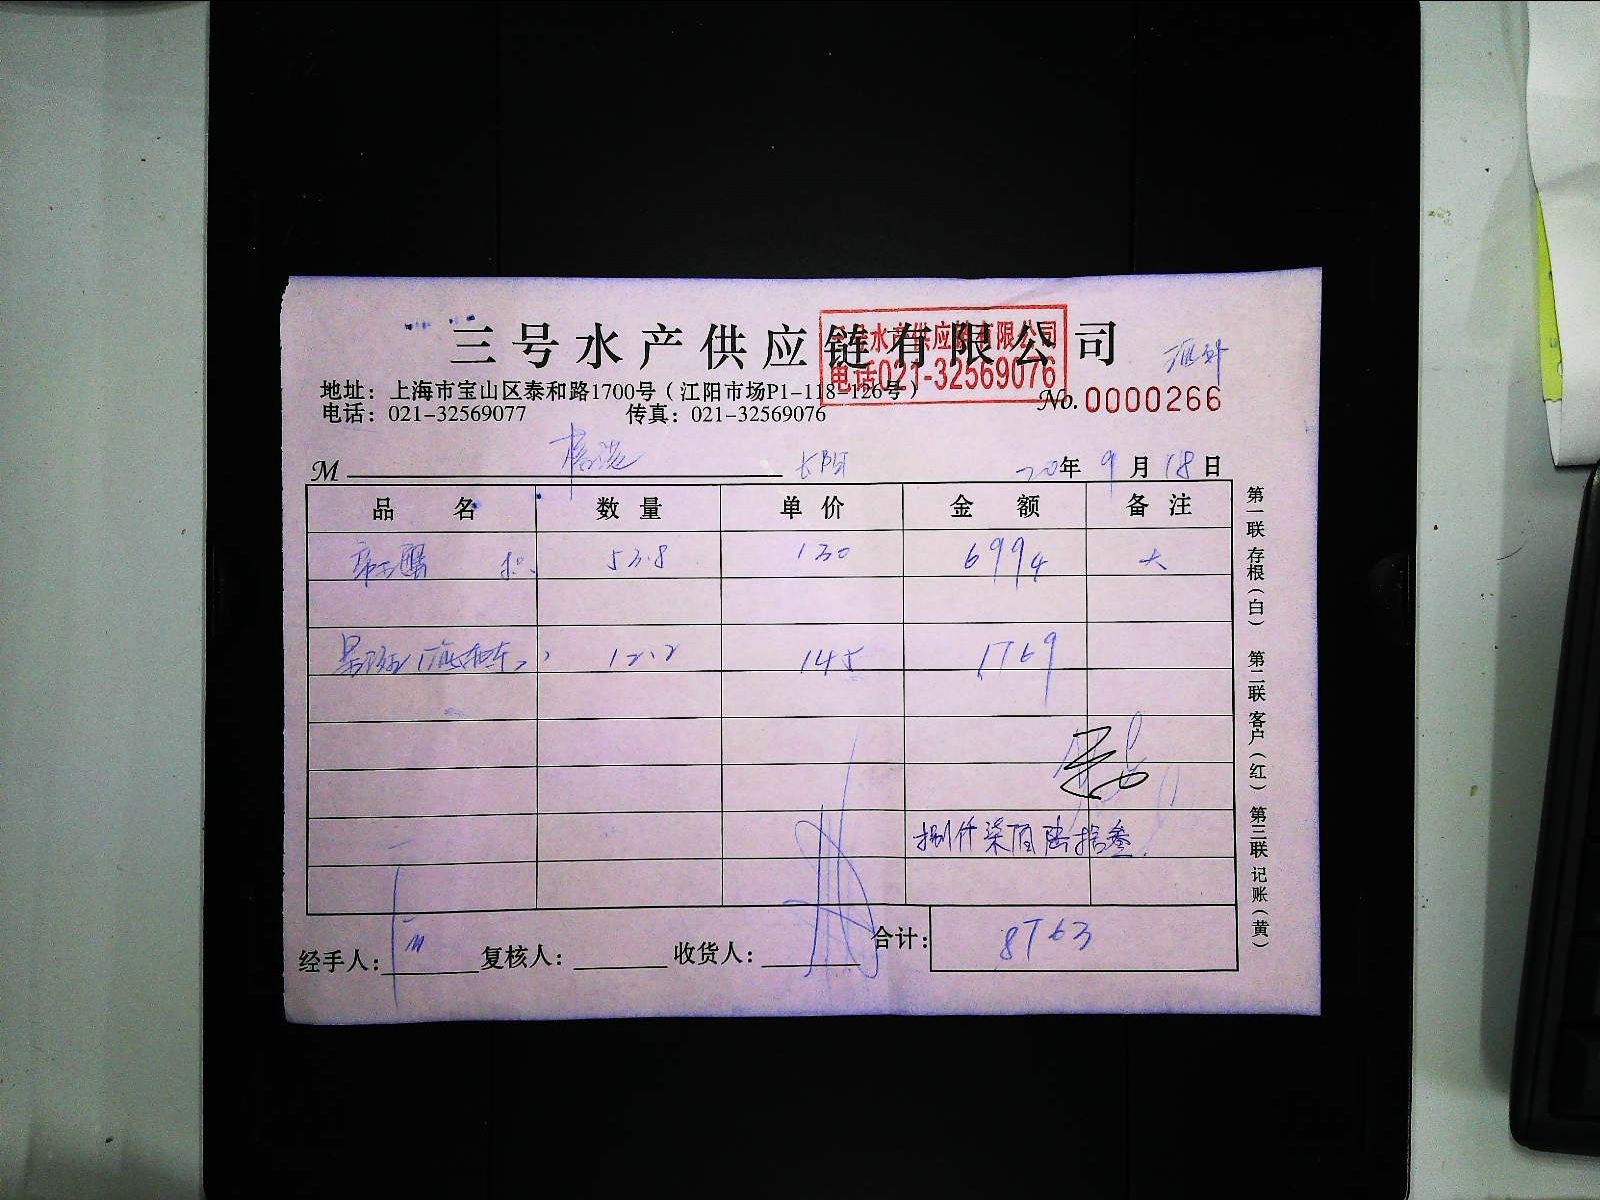 三号水产供应链有限公司
三号水产供应链有限公司
电话021-32569076
地址：上海市宝山区泰和路1700号（江阳市场P1-118-126号）
电话：021-32569077 传真：021-32569076
No.0000266
M 20年9月18日
品名 数量 单价 金额 备注
53.8 130 6994 大
12.2 145 1769
捌仟柒佰陆拾叁
合计：8763
经手人： 复核人： 收货人：
第一联 存根（白） 第二联 客户（红） 第三联 记账（黄）